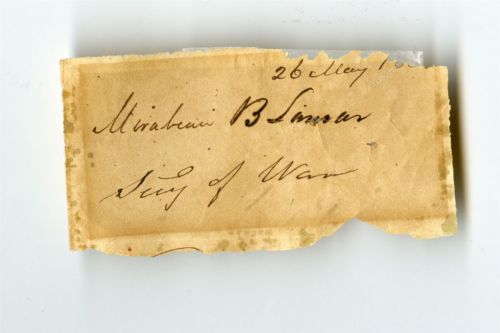 26 May
Mirabeau B Lamar
Secy of War